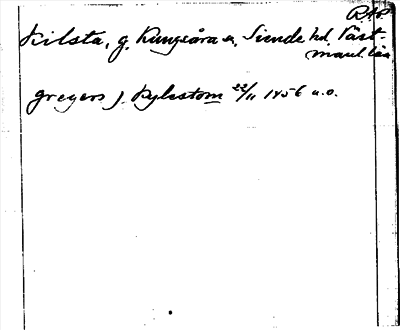 RAP.
Kilsta, g. Kungsåra sn, Siende hd, Väst-
manl. län
gregers j Kylsstom 22/11 1456 u.o.